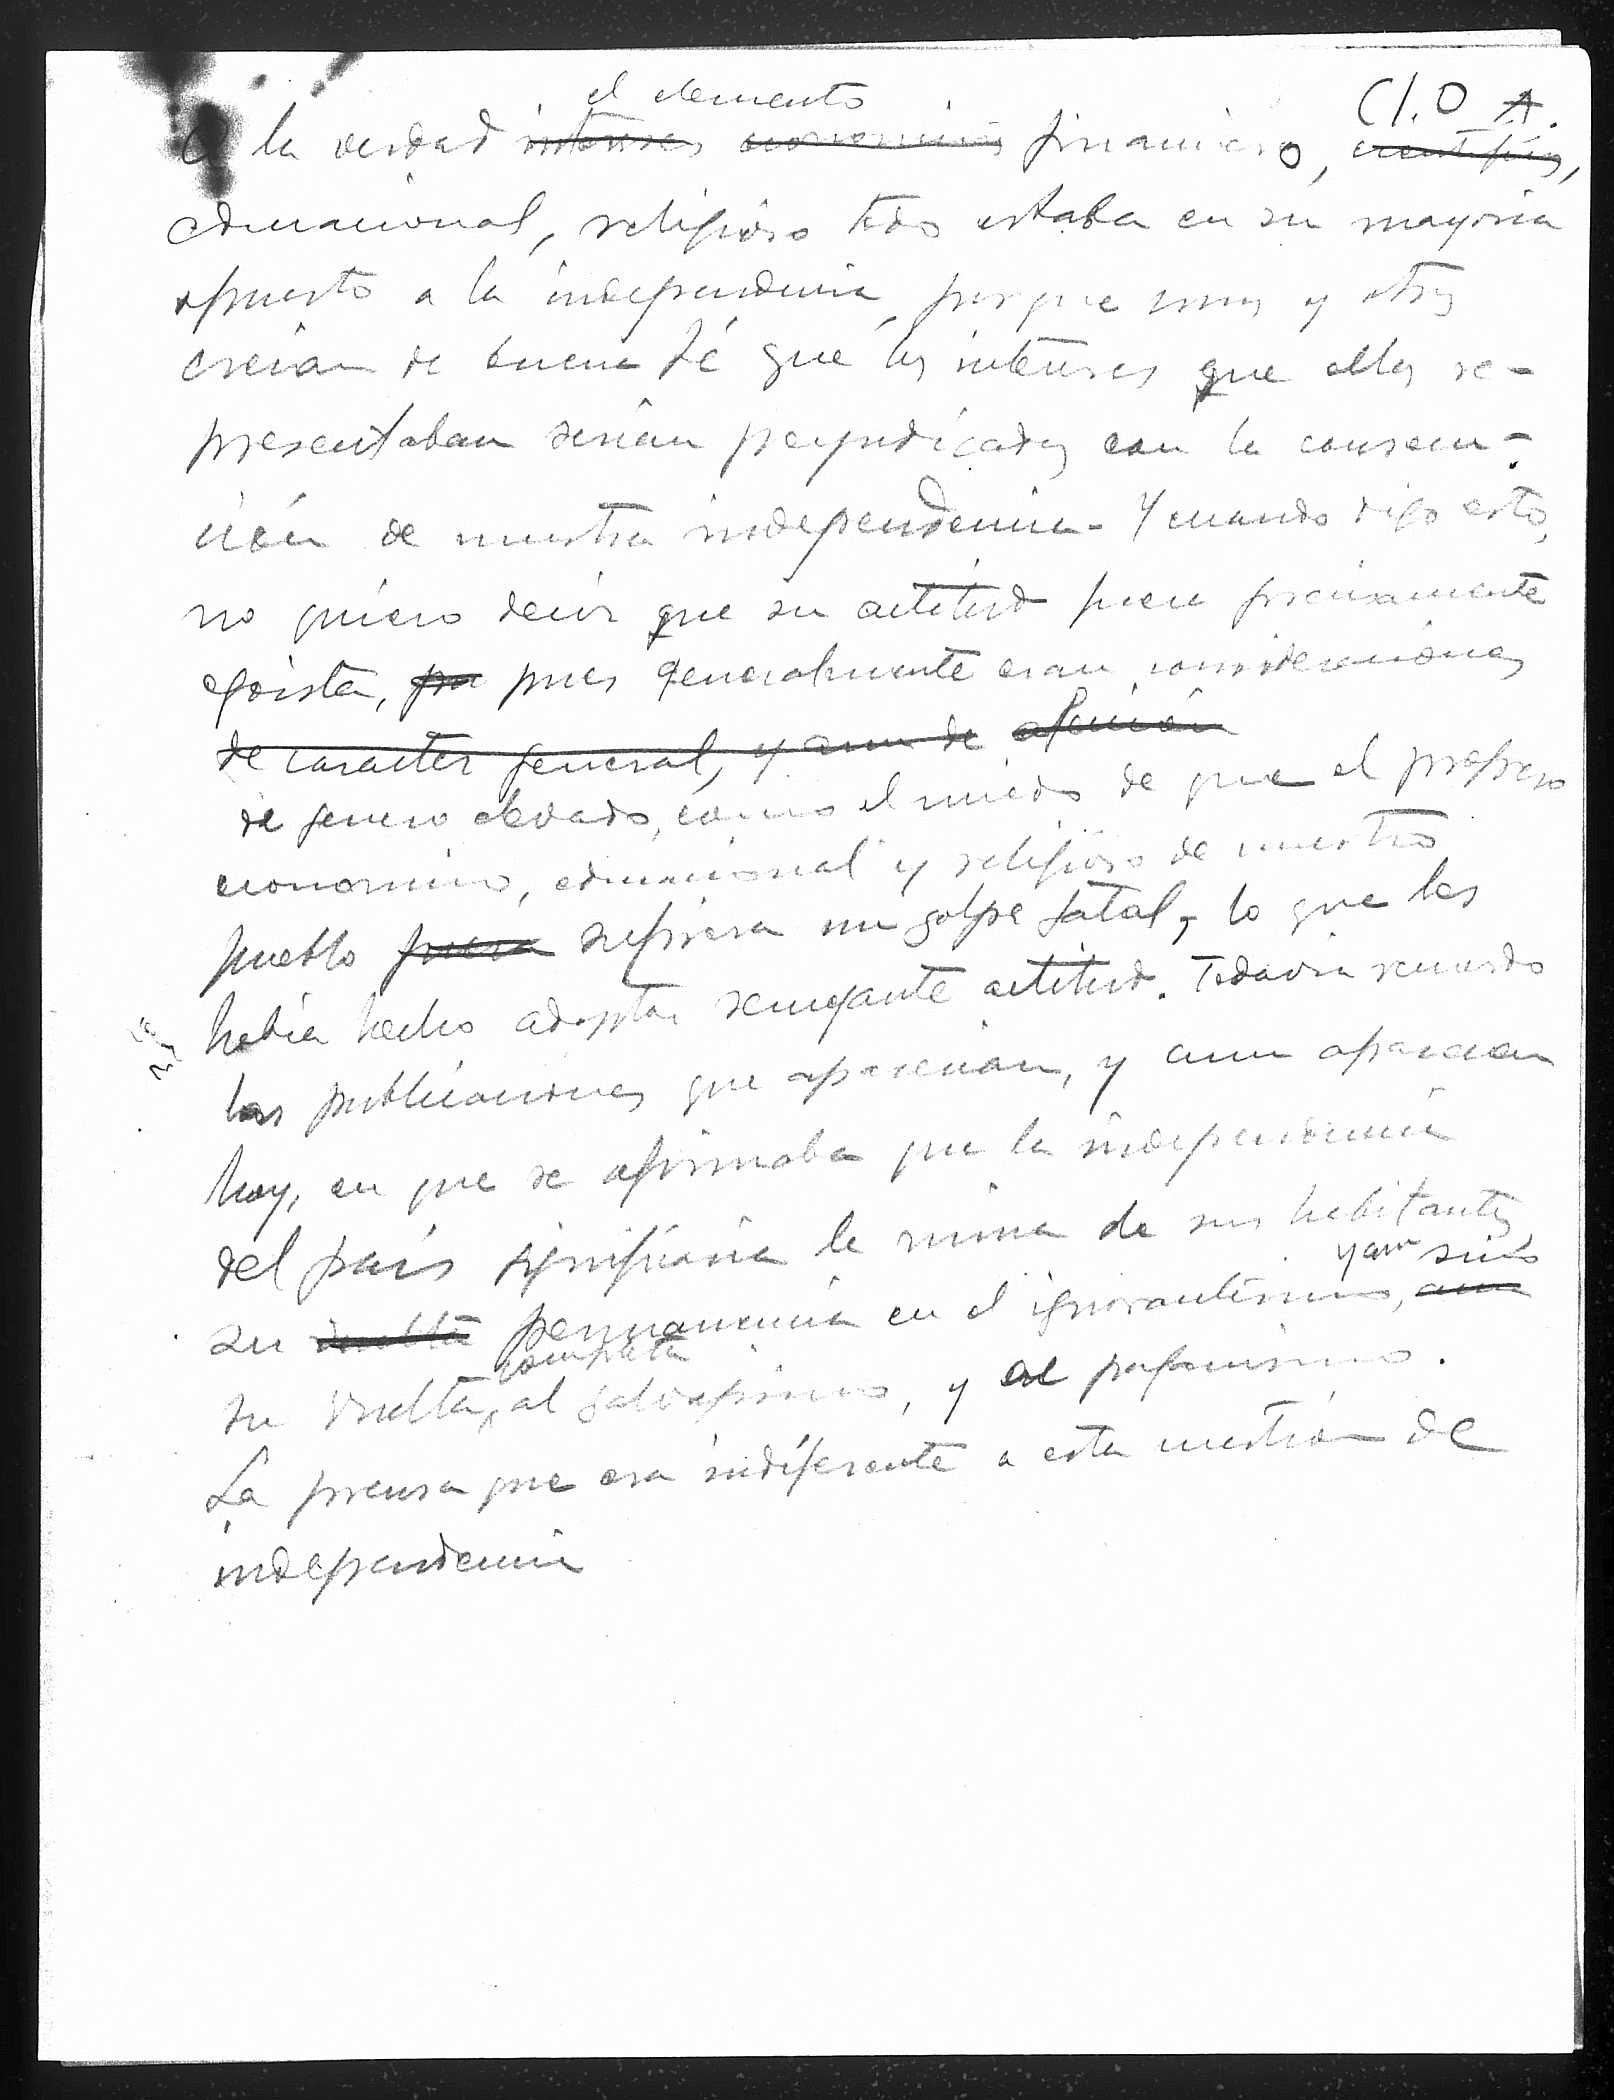 C.I.O A.
el elemento
A la verdad intereses economicos financiero, cientificos,
educacional, religioso todo estaba en su mayoria
opuesto a la independencia, porque unos y otros
creian de buena fé que los intereses que ellos re-
presentaban serian perjudicados con la consecu-
ción de nuestra independencia. Y cuando digo esto,
no quiero decir que su actitud fuera precisamente
egoista, por pues generalmente eran consideraciones
de caracter general, y aun de
de genero elevado, como el miedo de que el progreso
economico, educacional y religioso de nuestro
pueblo fuera sufriera un golpe fatal, lo que les
habia hecho adoptar semejante actitud. Todavia recuerdo
las publicaciones que aparecian, y aun aparecen
hoy, en que se afirmaba que la independencia
del pais significaria la ruina de sus habitantes
y aun sino
su vuelta permanencia en el ignorantismo, aun
completa
su vuelta, al salvajismo, y al paganismo.
La prensa que era indiferente a esta cuestión de
independencia